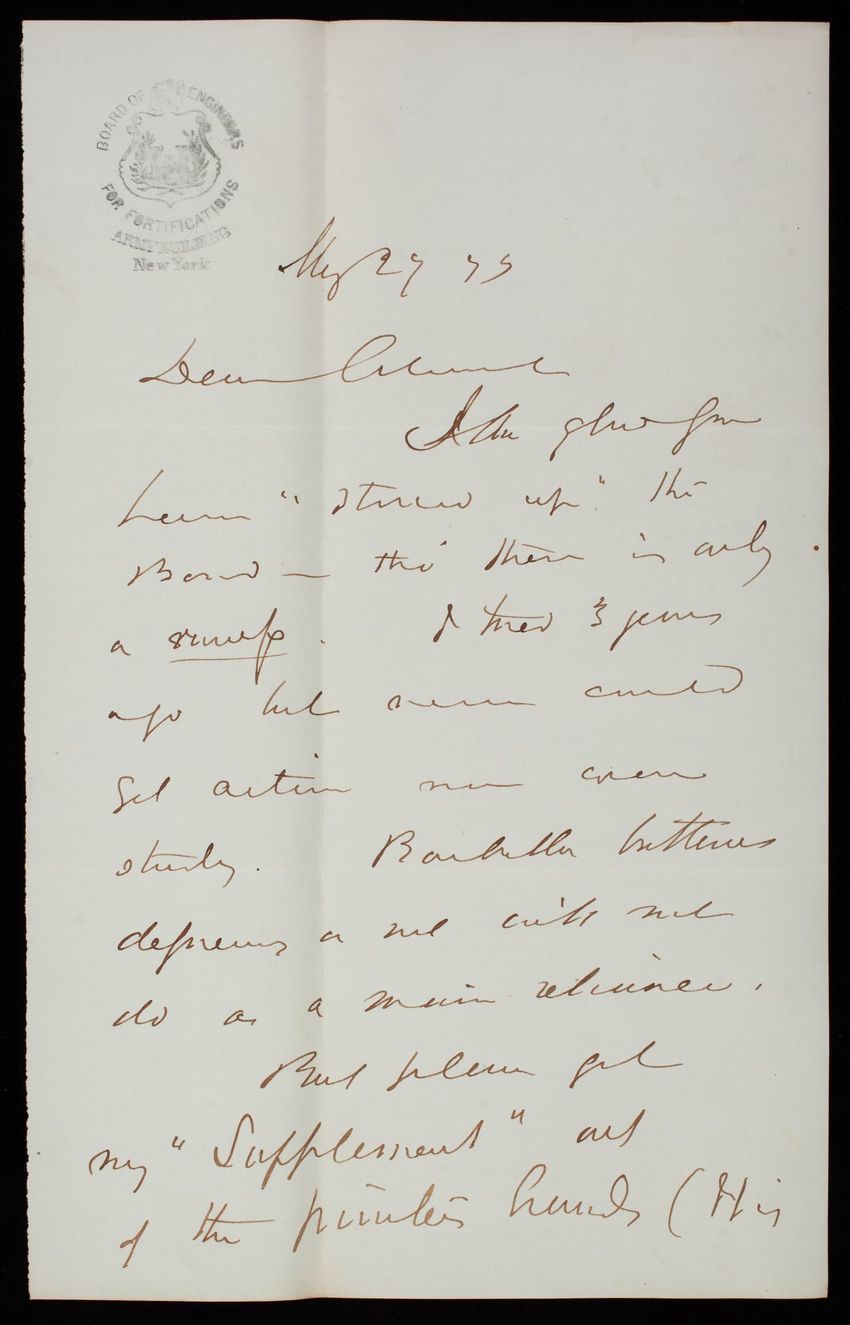 BOARD OF ENGINEERS
FOR FORTIFICATIONS
ARMY BUILDING
New York
May 27 75
Dear Colonel
I am glad you
have "stirred up" the
Board — tho' there is only
a rump. I tried 3 years
ago but never could
get action nor even
study. Barbette batteries
depressing or not will not
do as a main reliance.
But please get
my "Supplement" out
of the printers hands (It is